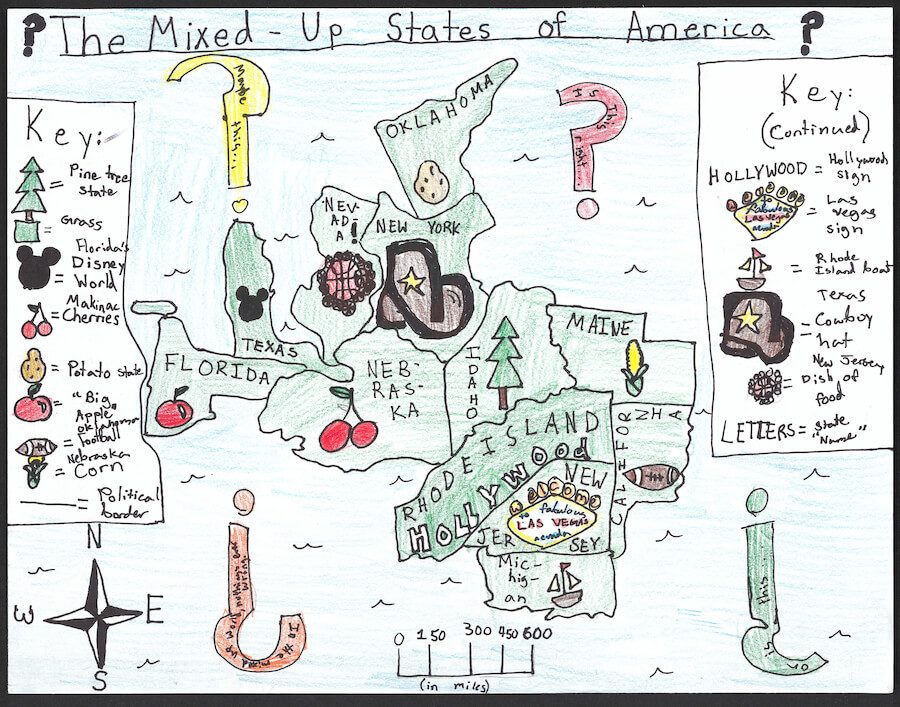 ? The Mixed-Up States of America ?
Key:
= Pine tree
state
= Grass
Florida's
= Disney
World
= Makinac
Cherries
= Potato state
= "Big
Apple"
oklahoma
= Football
Nebraska
= Corn
= Political
border
N
W E
S
Maybe this...
Is This right...
OKLAHOMA
NEV-
AD-
A!
NEW YORK
TEXAS
FLORIDA
NEB-
RAS-
KA
IDAHO
MAINE
RHODE ISLAND
HOLLYWOOD
CALIFORNIA
NEW
Welcome
to fabulous
LAS VEGAS
nevada
JER SEY
Mic-
hig-
an
In the mixed up world, nothings ever wrong.
Or is this...
0 150 300 450 600
(in miles)
Key:
(Continued)
HOLLYWOOD = Hollywood
sign
to
fabulous
LAS VEGAS
nevada
= Las
vegas
sign
= Rhode
Island boat
Texas
= Cowboy
hat
New Jersey
= Dish of
food
LETTERS = State
"Name"